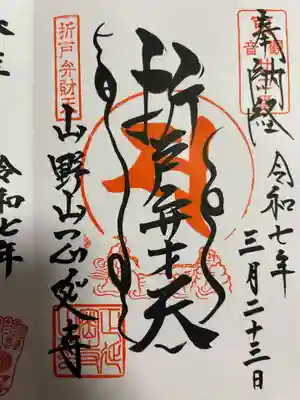 奉納経
令和七年
三月二十三日
折戸弁才天
折戸弁財天
山野山正延寺
令和七年